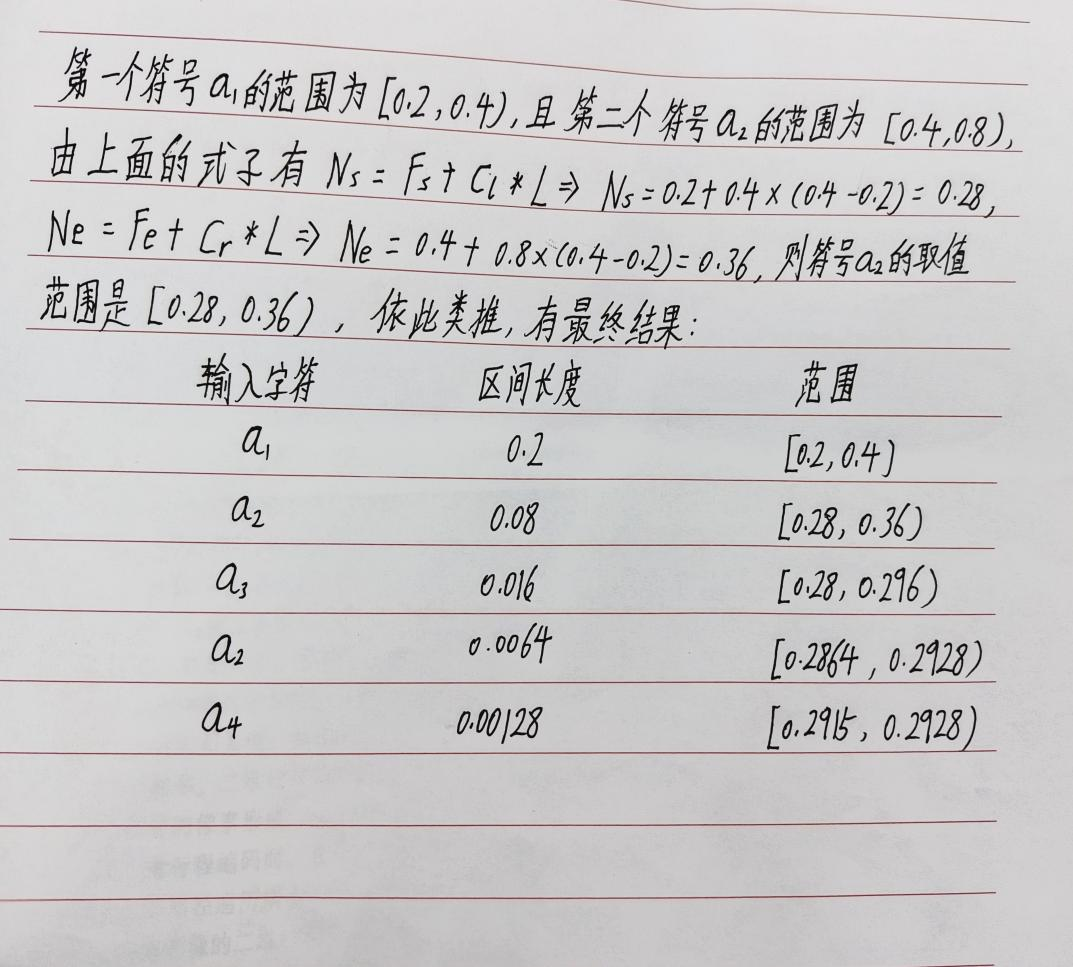 第一个符号a₁的范围为[0.2,0.4),且第二个符号a₂的范围为[0.4,0.8),
由上面的式子有Ns=Fs+Cl*L⇒Ns=0.2+0.4×(0.4-0.2)=0.28,
Ne=Fe+Cr*L⇒Ne=0.4+0.8×(0.4-0.2)=0.36,则符号a₂的取值
范围是[0.28,0.36),依此类推,有最终结果:
输入字符 区间长度 范围
a₁ 0.2 [0.2,0.4]
a₂ 0.08 [0.28,0.36)
a₃ 0.016 [0.28,0.296)
a₂ 0.0064 [0.2864,0.2928)
a₄ 0.00128 [0.2915,0.2928)